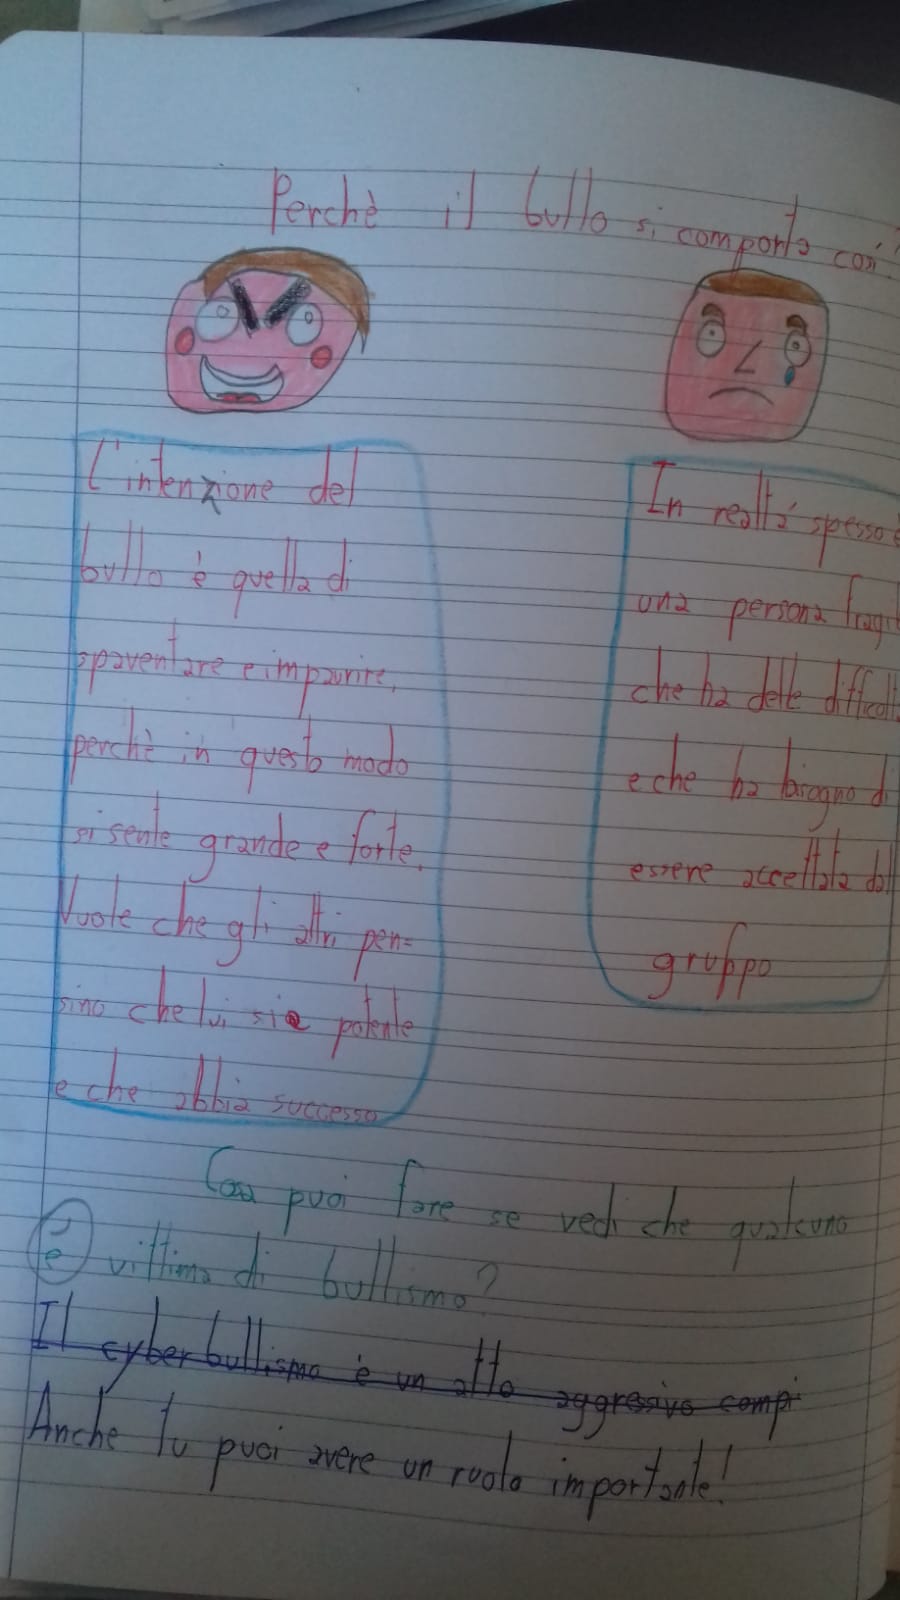 Perchè il bullo si comporta così?
L'intenzione del
bullo è quella di
spaventare e impaurire,
perchè in questo modo
si sente grande e forte.
Vuole che gli altri pen=
sino che lui sia potente
e che abbia successo
In realtá spesso è
una persona fragil
che ha delle difficolt
e che ha bisogno di
essere accettata dal
gruppo
Cosa puoi fare se vedi che qualcuno
è vittima di bullismo?
Il cyberbullismo è un atto aggressivo compi
Anche tu puoi avere un ruolo importante!